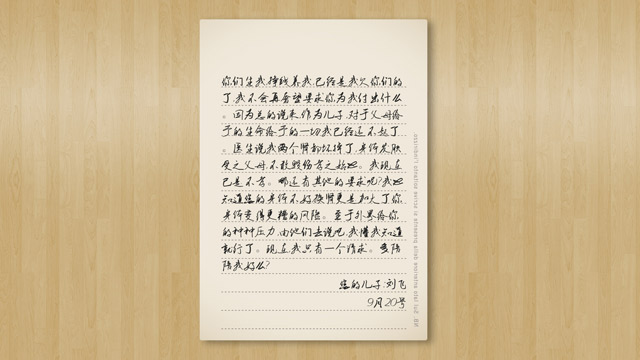 你们生我挣钱养我，已经是我欠你们的
了，我不会再奢望要求你为我付出什么
。因为总的说来，作为儿子，对于父母给
予的生命给予的一切我已经还不起了
。医生说我两个肾都坏掉了，身体发肤
受之父母，不敢毁伤孝之始也。我现在
已是不孝。哪还有其他的要求呢？我也
知道您的身体不好换肾更是加大了你
身体变得更糟的风险。至于外界给你
的种种压力，由他们去说吧，我懂我知道
就行了。现在我只有一个请求。多陪
陪我好么？
您的儿子：刘飞
9月20号